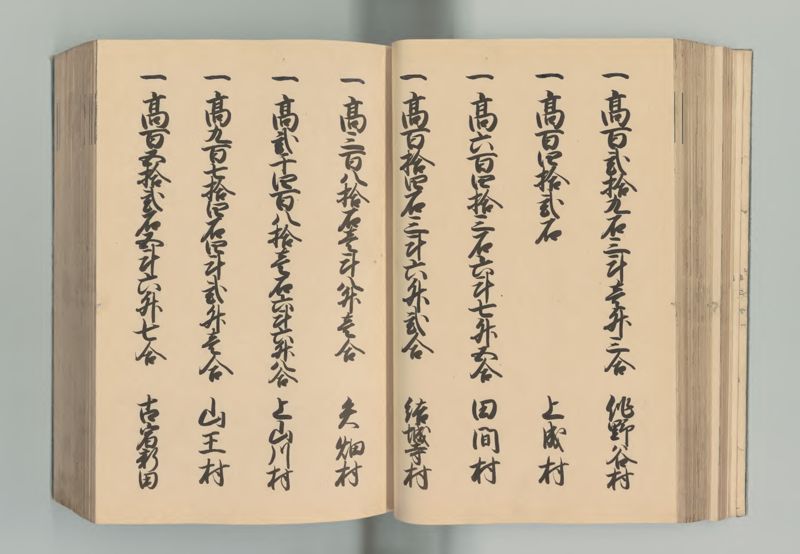 一 高百弐拾九石三斗壱升三合 作野谷村
一 高百四拾弐石 上成村
一 高六百四拾三石六斗七升五合 田間村
一 高百拾四石三斗六升弐合 結城寺村
一 高三百八拾石壱斗八升壱合 矢畑村
一 高弐千四百八拾壱石六斗六升八合 上山川村
一 高九百七拾四石四斗弐升壱合 山王村
一 高百五拾弐石五斗六升七合 古宿新田